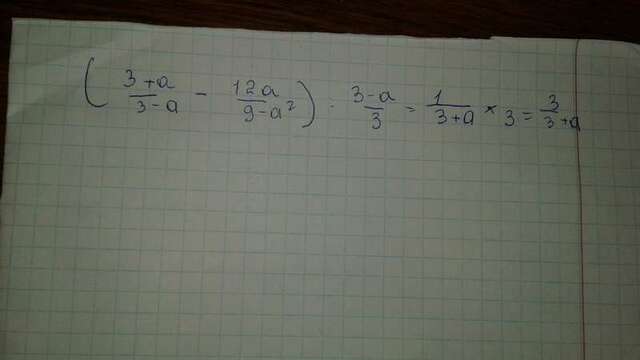 (3+a/3-a - 12a/9-a²) · 3-a/3 = 1/3+a × 3 = 3/3+a